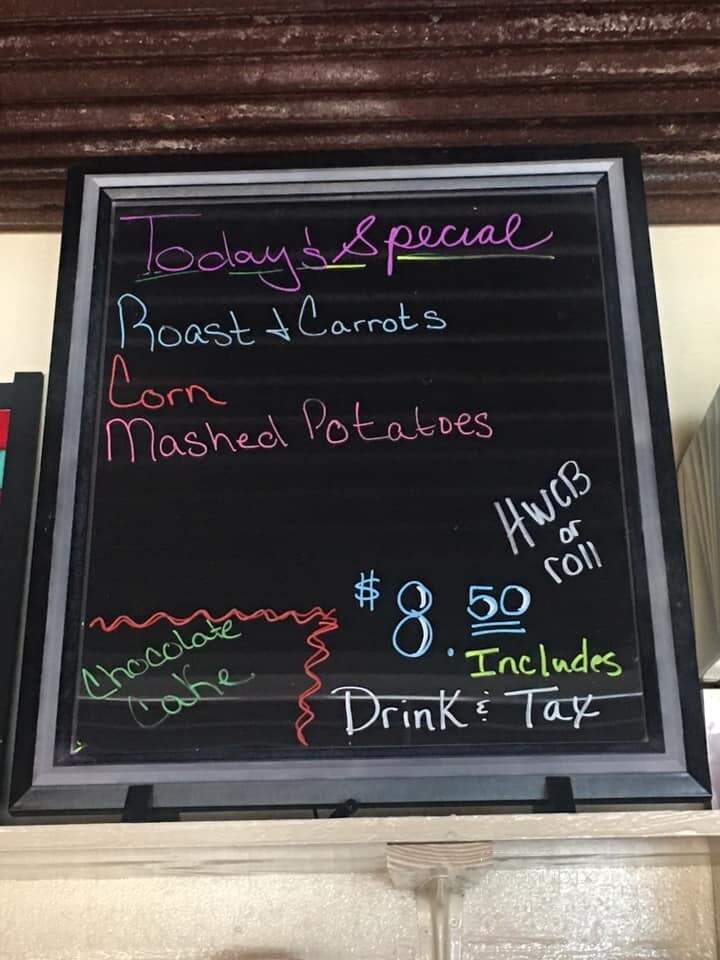 Today's Special
Roast & Carrots
Corn
Mashed Potatoes
HWCB
or
roll
$8.50
Includes
Drink & Tax
Chocolate
Cake